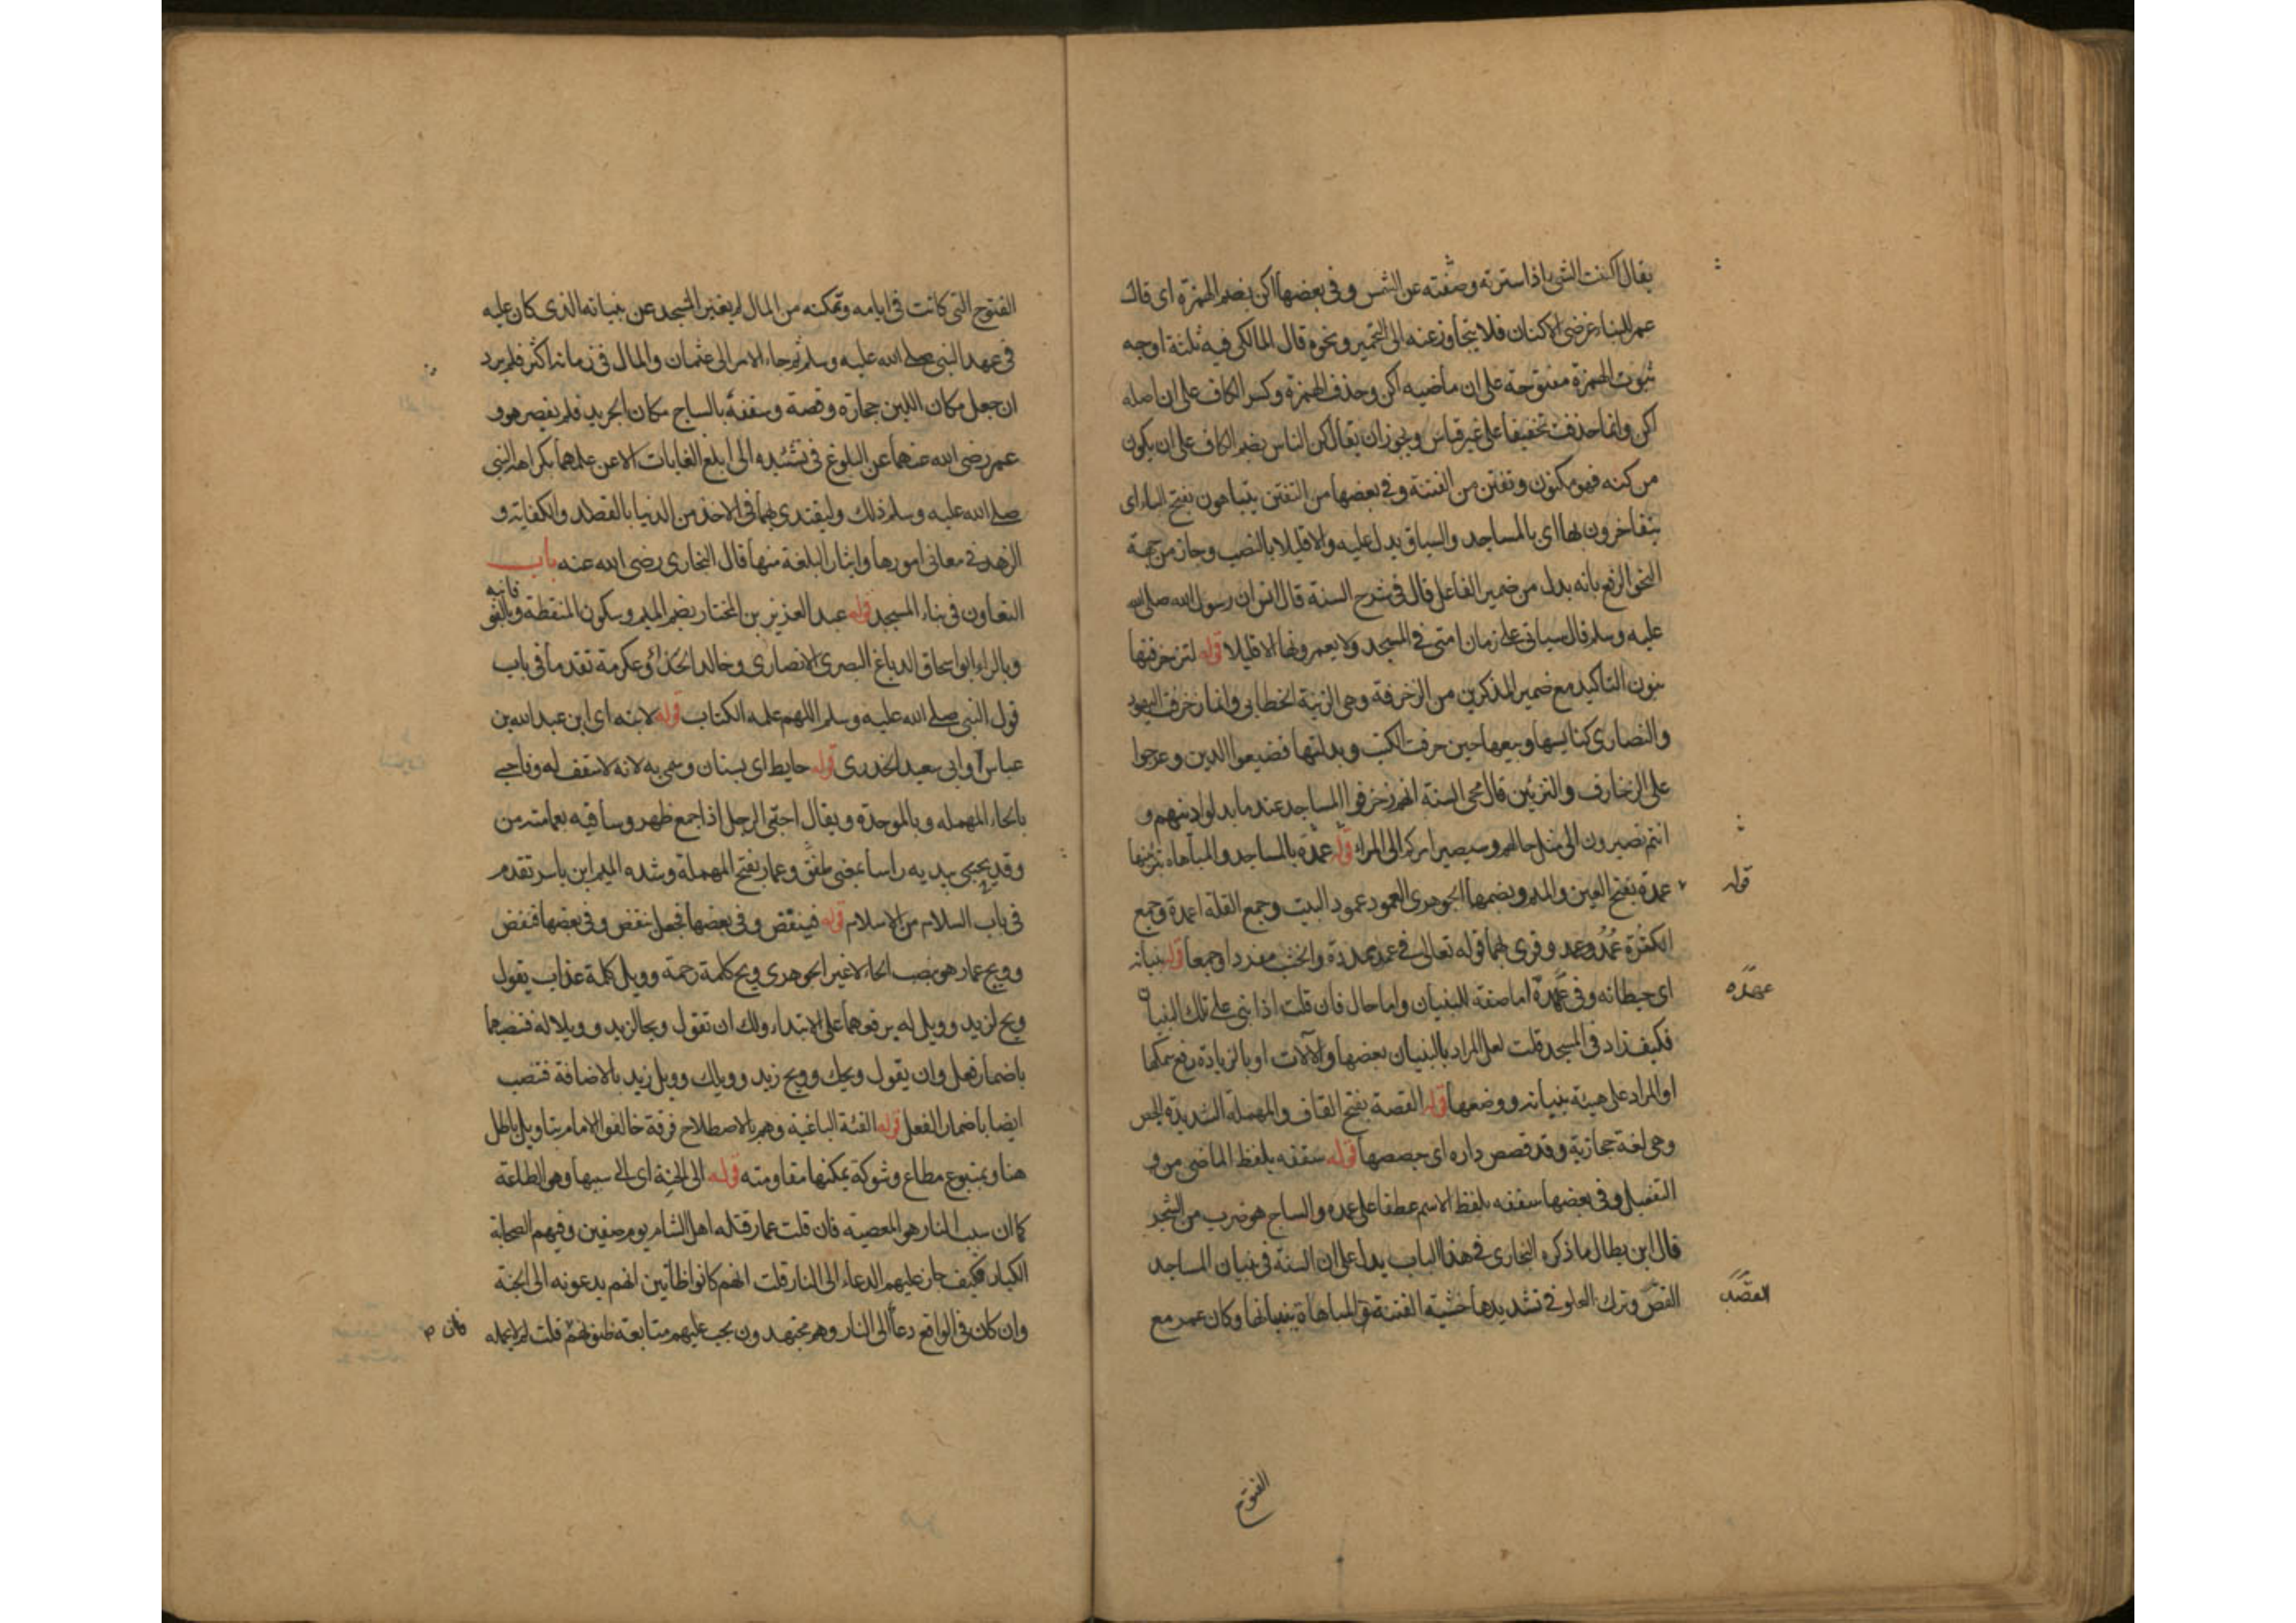 يقال اكننت الشئ اذا سترته وصنته عن الشمس وفى بعضها اكن بضم الهمزة اى قال
عمر للبناء غرضى الاكنان فلا يتجاوز عنه الى التحمير ونحوه قال المالكى فيه ثلثة اوجه
ثبوت الهمزة مفتوحة على ان ماضيه اكن وحذف الهمزة وكسر الكاف على ان اصله
اكن وانما حذفت تخفيفا على غير قياس ويجوز ان يقال كن الناس بضم الكاف على ان يكون
من كنه فهو مكنون وتفتن من الفتنة وفى بعضها من التفتن يتباهون بفتح الهاء اى
يتفاخرون بها اى بالمساجد والسياق يدل عليه والا قليلا بالنصب وجاز من جهة
النحو الرفع بانه بدل من ضمير الفاعل قال فى شرح السنة قال انس ان رسول الله صلى الله
عليه وسلم قال سياتى على زمان امتى فى المسجد ولا يعمرونها الا قليلا قوله لتزخرفنها
بنون التاكيد مع ضمير المذكرين من الزخرفة وهى الزينة الخطابى وانما زخرفت اليهود
والنصارى كنايسها وبيعها حين حرفت الكتب وبدلتها فضيعوا الدين وعرجوا
على الزخارف والتزيين قال محى السنة انهم زخرفوا المساجد عند ما بدلوا دينهم و
انتم تصيرون الى مثل حالهم وسيصير امركم الى المراء قوله عمدة بالمساجد والمباهاة بتزيينها
قوله
عمده بفتح العين والميم وبضمهما الجوهرى العمود عمود البيت وجمع القلة اعمدة وجمع
الكثرة عُمُد وعمد وقرى بهما قوله تعالى فى عمد ممددة والخشب مفردا وجمعا قوله بنيانه
عهده
اى حيطانه وفى عهده اما صفة للبنيان واما حال فان قلت اذا بنى على تلك البنيان
فكيف زاد فى المسجد قلت لعل المراد بالبنيان بعضها والآلات او بالزيادة رفع سمكها
او المراد على هيئة بنيانه ووضعها قوله القصة بفتح القاف والمهملة الشديدة الجص
وهى لغة حجازية وقد قصص داره اى جصصها قوله سقفه بلفظ الماضى من و
التفعيل وفى بعضها سقفه بلفظ الاسم عطفا على عمده والساج هو ضرب من الشجر
قال ابن بطال ما ذكره البخارى فى هذا الباب يدل على ان السنة فى بنيان المساجد
القصد
القص وترك الغلو فى تشديدها خشية الفتنة والمباهاة ببنيانها وكان عمر مع
الفتوح
الفتوح التى كانت فى ايامه وتمكنه من المال لم يغير المسجد عن بنيانه الذى كان عليه
فى عهد النبى صلى الله عليه وسلم ثم جاء الامر الى عثمان والمال فى زمانه اكثر فلم يزد
ان جعل مكان اللبن حجارة وقصة وسقفه بالساج مكان الجريد فلم يقصر هو و
عمر رضى الله عنهما عن البلوغ فى تشييده الى ابلغ الغايات الا عن علمهما بكراهة النبى
صلى الله عليه وسلم ذلك وليقتدى بهما فى الاخذ من الدنيا بالقصد والكفاية و
الزهد فى معانى امورها وايثار البلغة منها قال البخارى رضى الله عنه باب
التعاون فى بناء المسجد قوله عبد العزيز بن المختار بضم الميم وسكون المنقطة وبالفوقانيه
وبالراء ابو اسحاق الدباغ البصرى الانصارى وخالد الحذاء وعكرمة تقدما فى باب
قول النبى صلى الله عليه وسلم اللهم علمه الكتاب قوله لابنه اى ابن عبد الله بن
عباس وابى سعيد الخدرى قوله حايط اى بستان وسمى به لانه لا سقف له وفاحبى
بالحاء المهمله وبالموحدة ويقال احتبى الرجل اذا جمع ظهره وساقيه بعمامته من
وقد يحتبى بيديه راسا بمعنى طفق وعمار بفتح المهملة وشده الميم ابن ياسر تقدم
فى باب السلام من الاسلام قوله فينقض وفى بعضها فجعل ينفض وفى بعضها فنفض
وويح عمار هو بنصب الحاء لا غير الجوهرى ويح كلمة رحمة وويل كلمة عذاب يقول
ويح لزيد وويل له يرفعهما على الابتداء ولك ان تقول ويحا لزيد وويلا له فتنصبهما
باضمار فعل وان يقول ويحك وويح زيد وويلك وويل زيد بالاضافة فتنصب
ايضا باضمار الفعل قوله الفئة الباغية وهم بالاصطلاح فرقة خالفوا الامام بتاويل باطل
هنا وبمتبوع مطاع وشوكة يمكنها مقاومته قوله الى الجنة اى الى سببها وهو الطاعة
كما ان سبب النار هو المعصيه فان قلت عمار قتله اهل الشام يوم صفين وفيهم الصحابة
الكبار فكيف جاز عليهم الدعاء الى النار قلت انهم كانوا ظانين انهم يدعونه الى الجنة
وان كان فى الواقع دعاء الى النار وهم مجتهدون يجب عليهم متابعة ظنونهم قلت